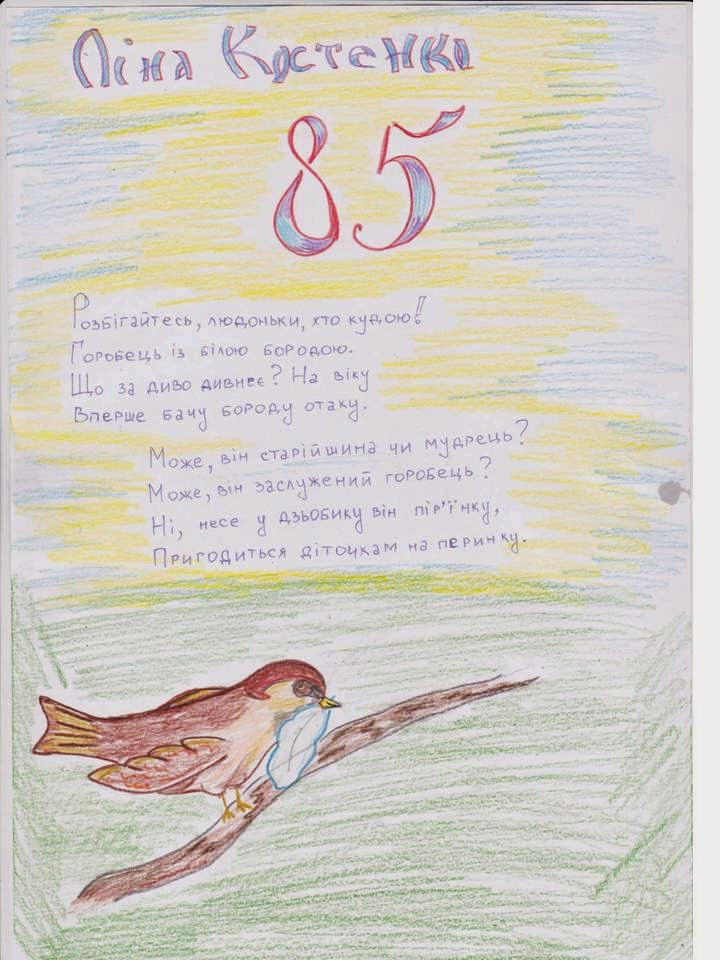 Ліна Костенко
85
Розбігайтесь, людоньки, хто кудою!
Горобець із білою бородою.
Що за диво дивнеє? На віку
Вперше бачу бороду отаку.
Може, він старійшина чи мудрець?
Може, він заслужений горобець?
Ні, несе у дзьобику він пір'їнку,
Пригодиться діточкам на перинку.